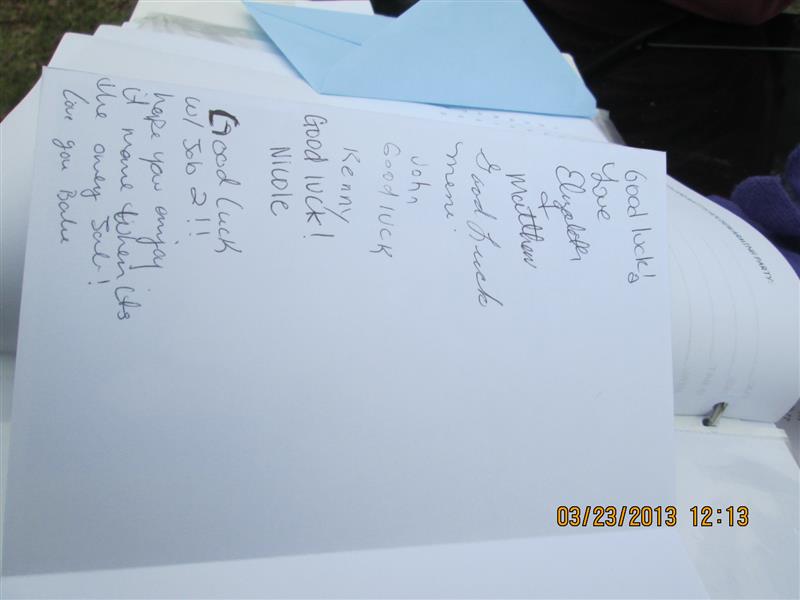 Good luck!
Love
Elizabeth
+
Matthew
Good Luck
meme!
John
Good luck
Kenny
Good luck!
Nicole
Good Luck
w/ Job 2!!
hope you enjoy
it more when its
the oney Job!
Love you Babe
PARTY:
03/23/2013 12:13